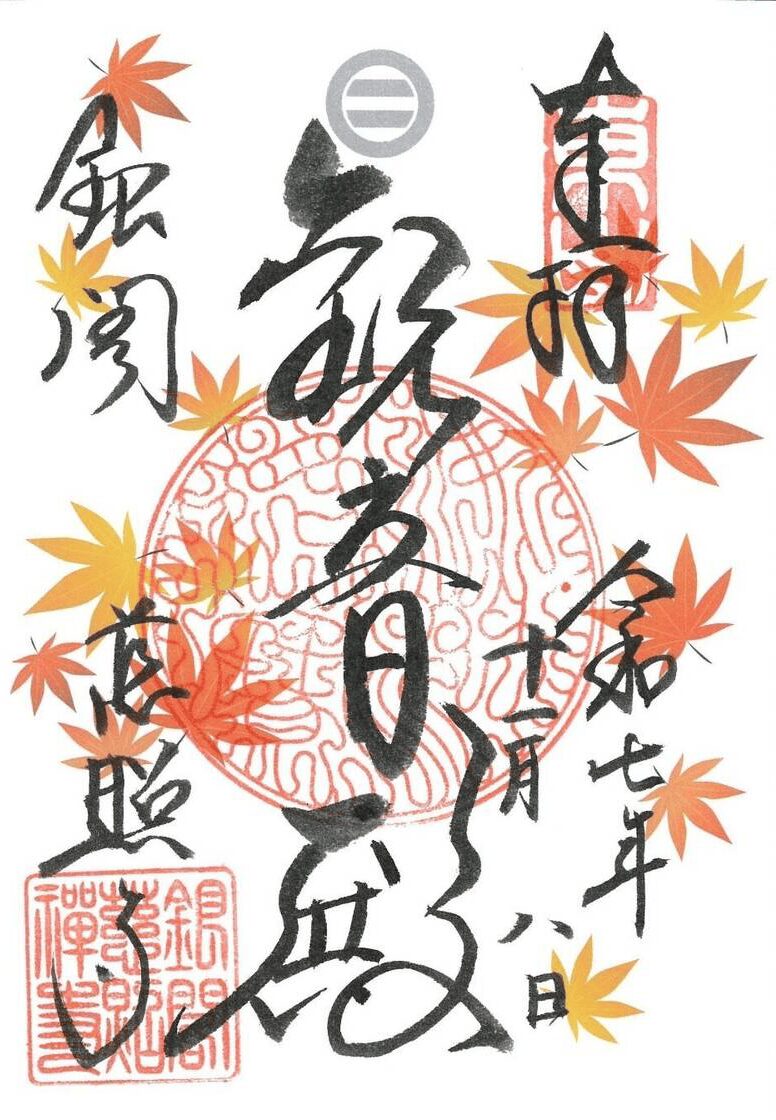 奉拝
令和七年
十一月
八日
観音殿
銀閣
慈照寺
銀閣
慈照
禅寺